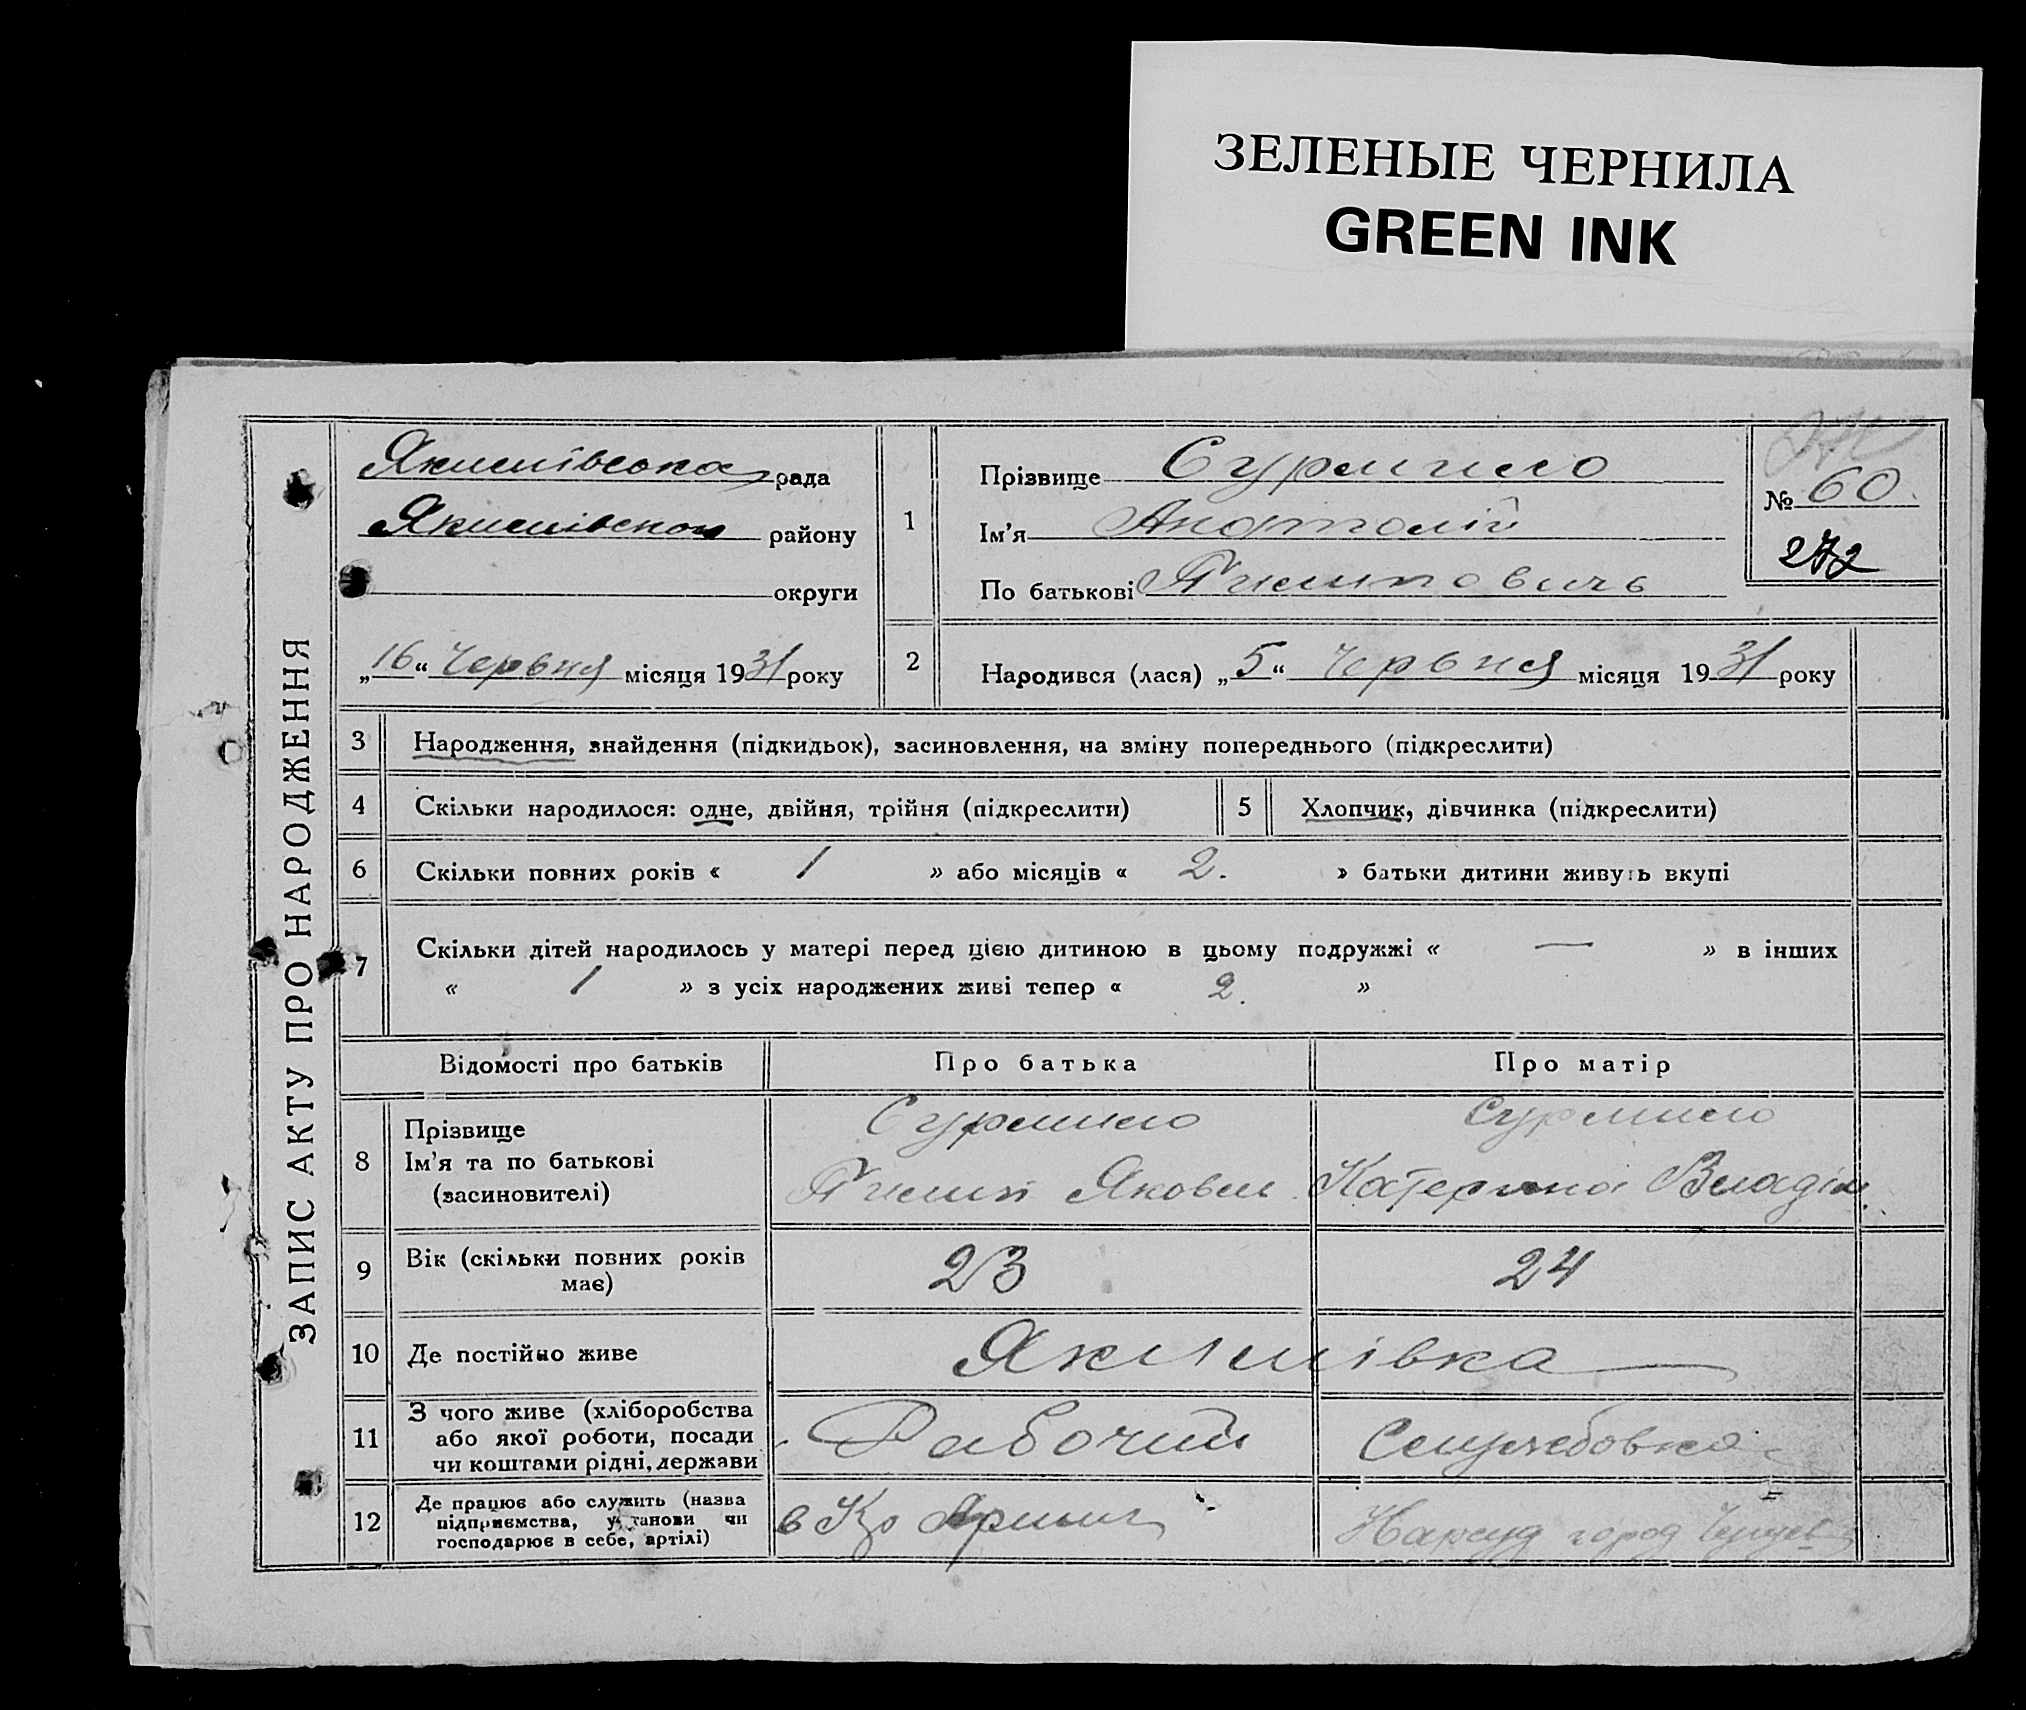 ЗЕЛЕНЫЕ ЧЕРНИЛА
GREEN INK
ЗАПИС АКТУ ПРО НАРОДЖЕННЯ
Якимівська рада
Якимівського району
округи
„16“ Червня місяця 1931 року
1
Прізвище Сурмило
Ім'я Анатолій
По батькові Пилиповичь
№ 60
272
2 Народився (лася) „5“ Червня місяця 1931 року
3 Народження, знайдення (підкидьок), засиновлення, на зміну попереднього (підкреслити)
4 Скільки народилося: одне, двійня, трійня (підкреслити) 5 Хлопчик, дівчинка (підкреслити)
6 Скільки повних років « 1 » або місяців « 2. » батьки дитини живуть вкупі
7 Скільки дітей народилось у матері перед цією дитиною в цьому подружжі « — » в інших
« 1 » з усіх народжених живі тепер « 2. »
Відомості про батьків Про батька Про матір
8 Прізвище Сурмило Сурмило
Ім'я та по батькові Пилип Яковл. Катерина Владім.
(засиновителі)
9 Вік (скільки повних років має) 23 24
10 Де постійно живе Якимівка
11 З чого живе (хліборобства Рабочий Службовка
або якої роботи, посади
чи коштами рідні, держави
12 Де працює або служить (назва в Кр Армии Нарсуд город
підприємства, установи чи
господарює в себе, артілі)